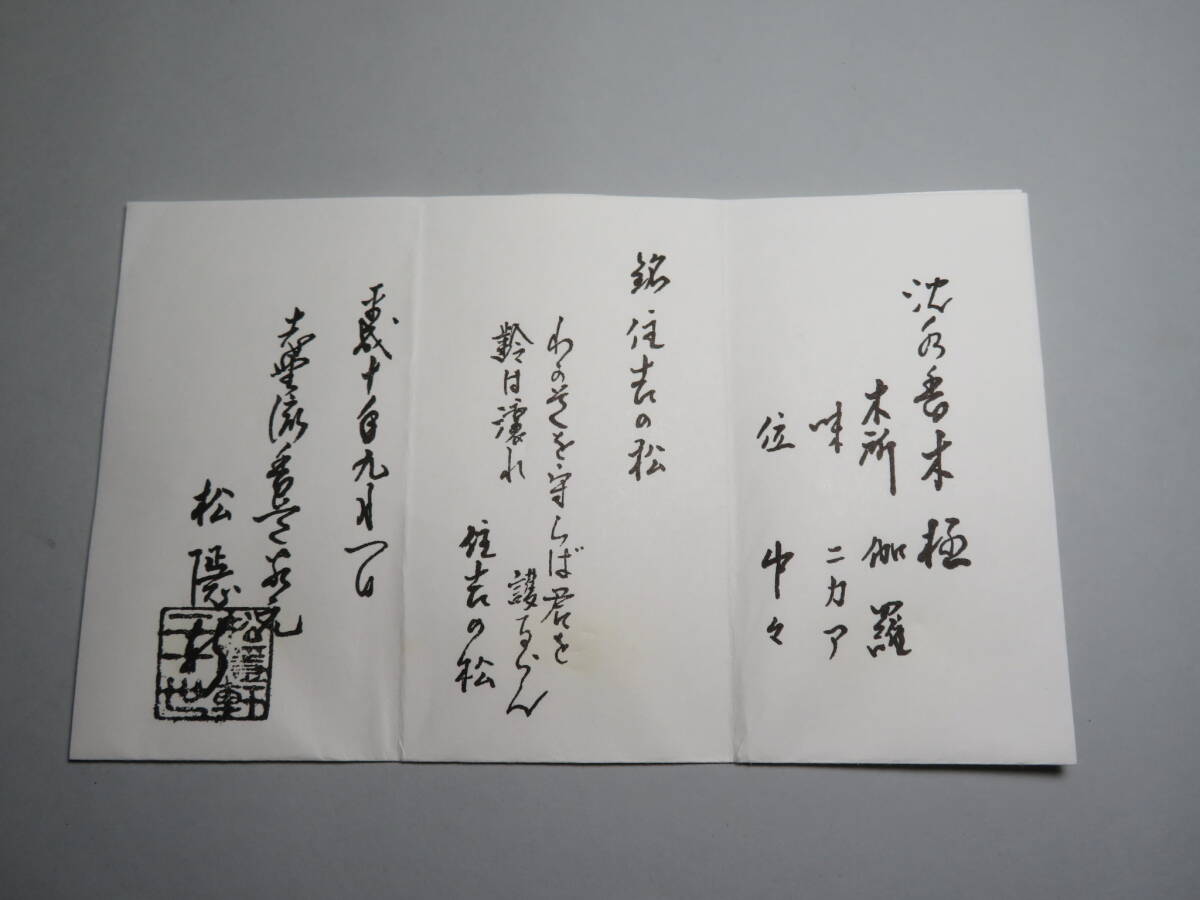 沈水香木 極
木所 伽羅
味 ニカア
位 中々
銘 住吉の松
わか道を守らば君を
護るらん
齢は讓れ
住吉の松
平成十年九月一日
志野流香道家元
松隠軒